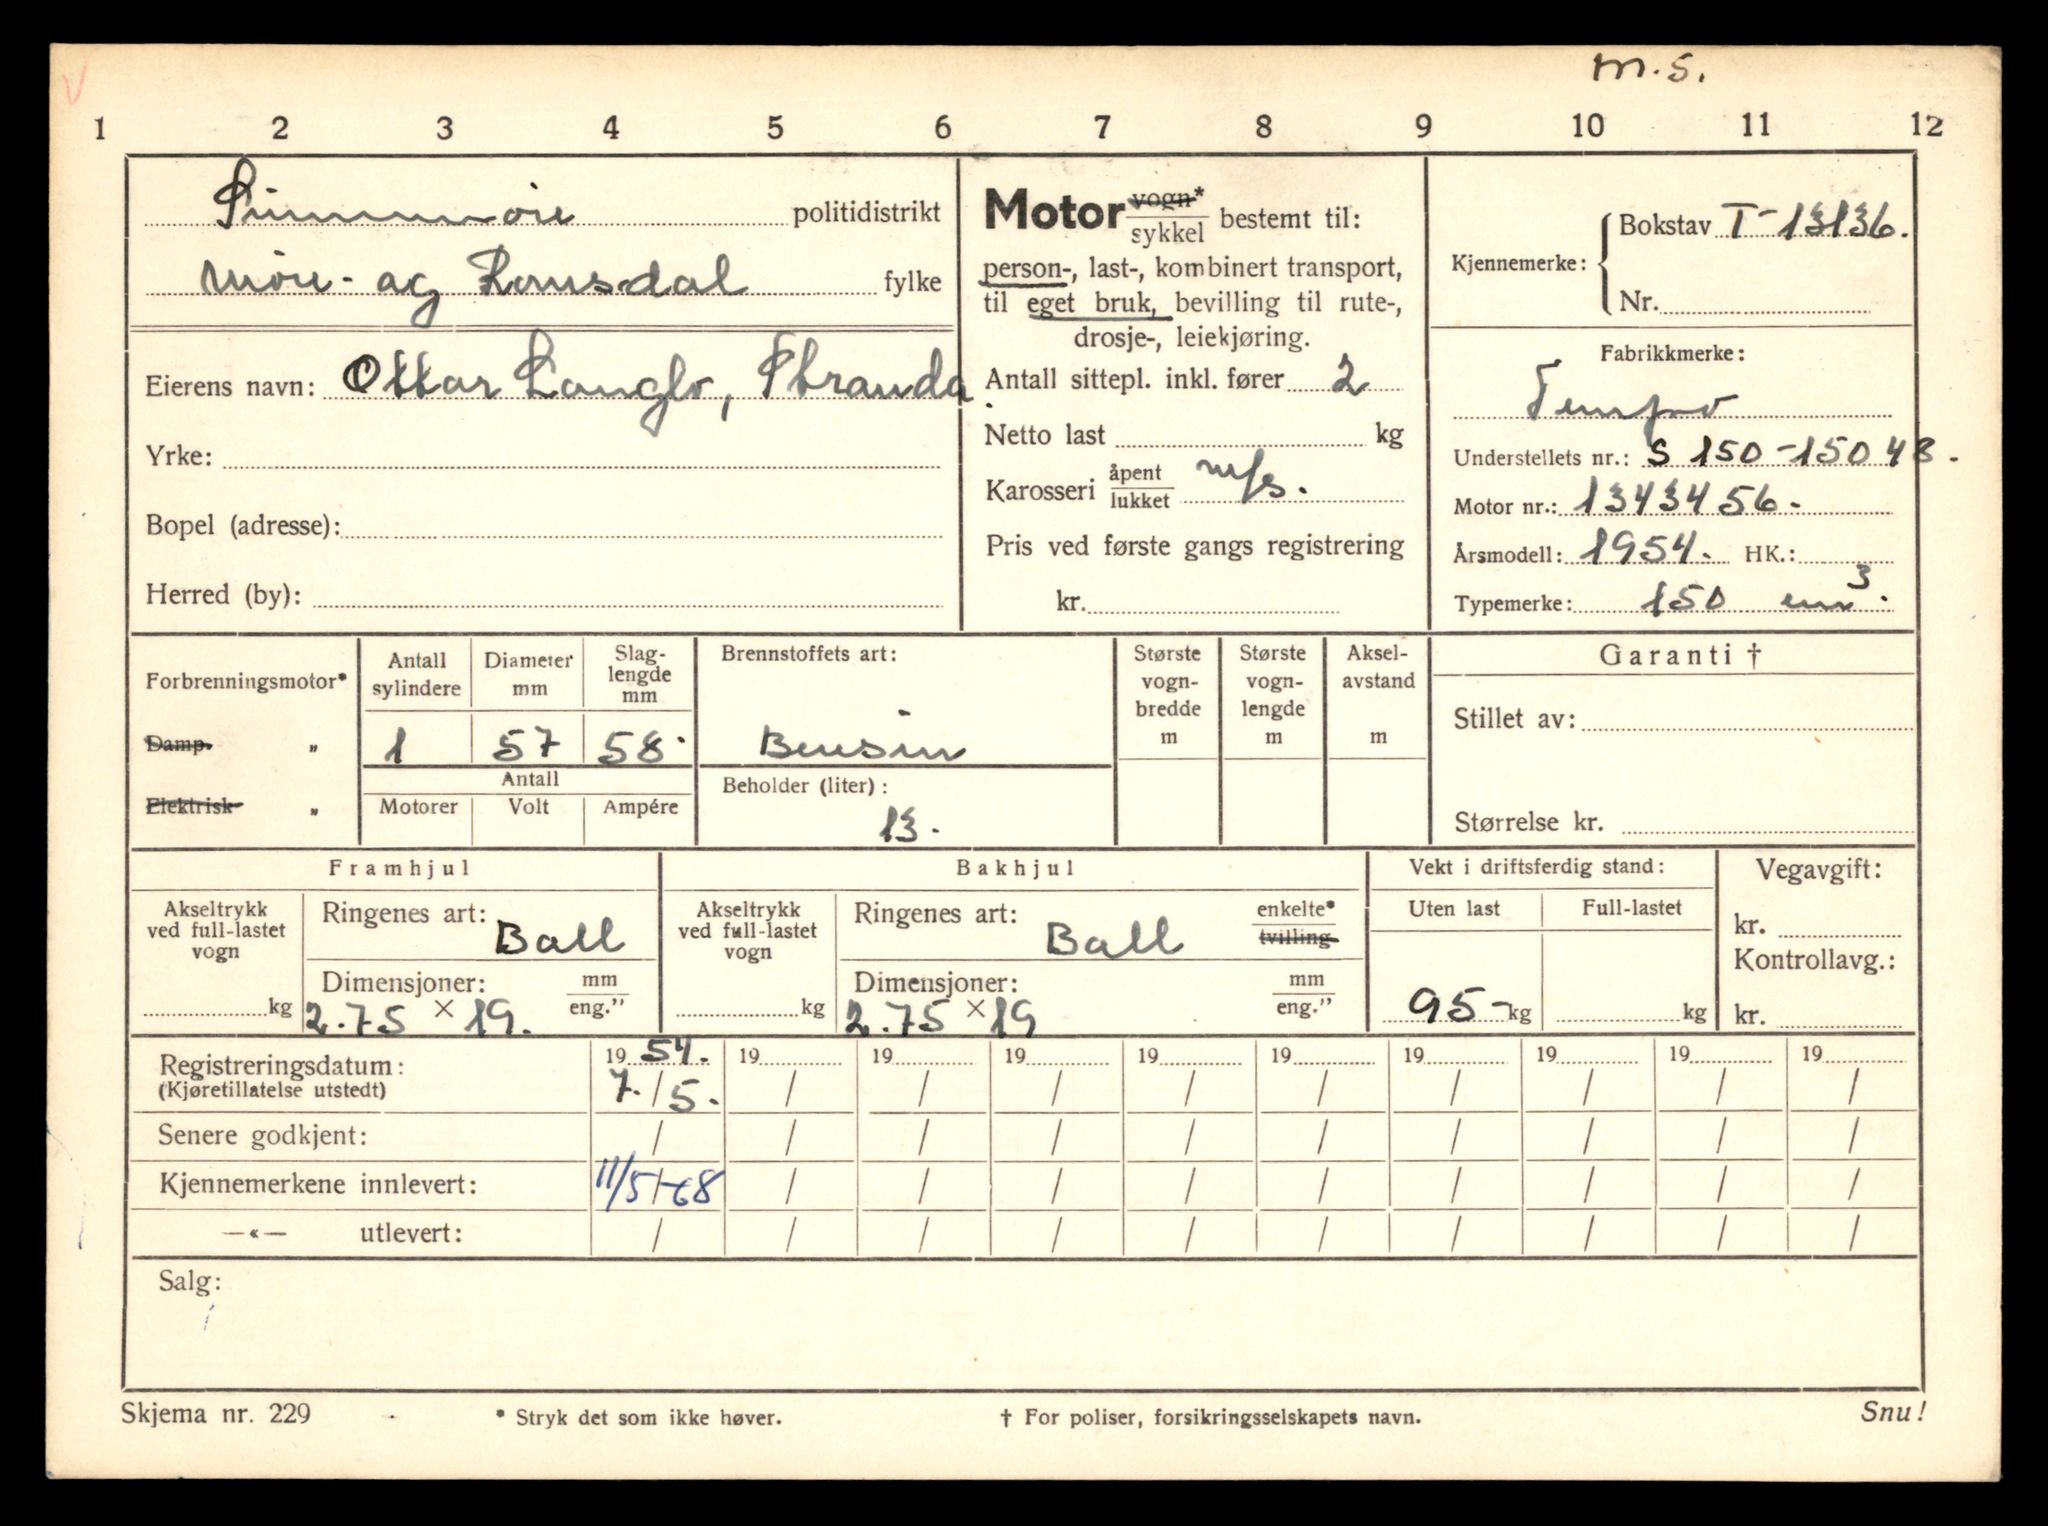 m.s.
1 2 3 4 5 6 7 8 9 10 11 12
Sunnmøre politidistrikt
Møre- og Romsdal fylke
Eierens navn: Ottar Langlo, Stranda.
Yrke:
Bopel (adresse):
Herred (by):
Motor vogn* / sykkel bestemt til:
person-, last-, kombinert transport,
til eget bruk, bevilling til rute-,
drosje-, leiekjøring.
Antall sittepl. inkl. fører 2
Netto last kg
Karosseri åpent / lukket m/s.
Pris ved første gangs registrering
kr.
Kjennemerke: Bokstav T-13136.
Nr.
Fabrikkmerke:
Tempo
Understellets nr.: S 150-15048.
Motor nr.: 1343456.
Årsmodell: 1954. HK.:
Typemerke: 150 cm³.
Forbrenningsmotor*
Damp. „
Elektrisk „
Antall sylindere
Diameter mm
Slag-
lengde
mm
1 57 58.
Antall
Motorer Volt Ampére
Brennstoffets art:
Bensin
Beholder (liter):
13.
Største
vogn-
bredde
m
Største
vogn-
lengde
m
Aksel-
avstand
m
Garanti †
Stillet av:
Størrelse kr.
Framhjul
Akseltrykk
ved full-lastet
vogn
kg
Ringenes art:
Ball
Dimensjoner: mm / eng."
2.75 × 19.
Bakhjul
Akseltrykk
ved full-lastet
vogn
kg
Ringenes art: enkelte* / tvilling
Ball
Dimensjoner: mm / eng."
2.75 × 19
Vekt i driftsferdig stand:
Uten last Full-lastet
95- kg kg
Vegavgift:
kr.
Kontrollavg.:
kr.
Registreringsdatum: 19 54. 19 19 19 19 19 19 19 19 19
(Kjøretillatelse utstedt) 7./5. / / / / / / / / /
Senere godkjent: / / / / / / / / / /
Kjennemerkene innlevert: 11/5-68 / / / / / / / / /
—«— utlevert: / / / / / / / / / /
Salg:
Skjema nr. 229 * Stryk det som ikke høver. † For poliser, forsikringsselskapets navn. Snu!